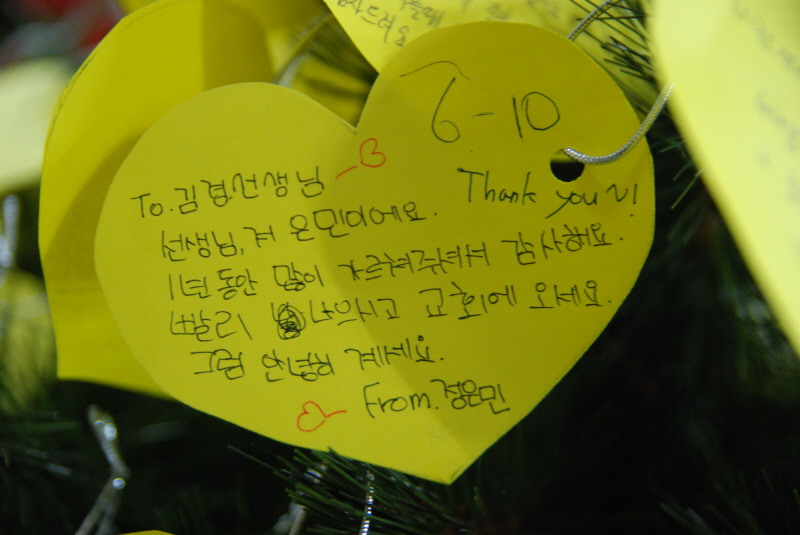 6-10
To.김겸선생님
Thank you~!
선생님, 저 은민이에요.
1년동안 많이 가르쳐주셔서 감사해요.
빨리 나으시고 교회에 오세요.
그럼 안녕히 계세요.
From.정은민